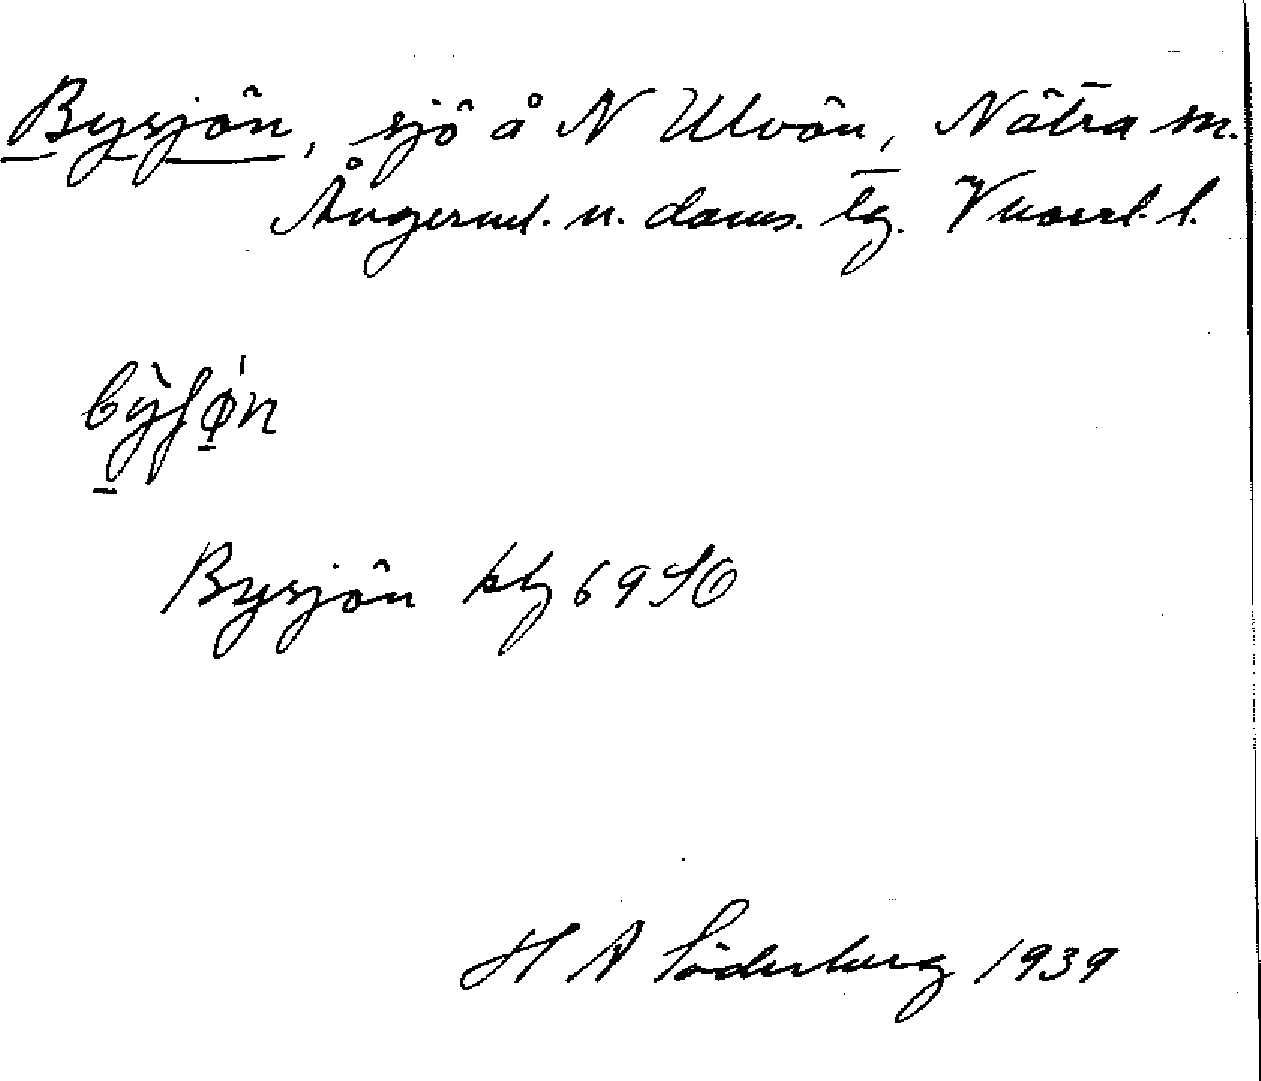 Bysjön, sjö å N Ulvön, Nätra sn.
Ångerml. n. doms. tg. Vnorrl. l.
bỳʃǿn
Bysjön kbl 69 SO
H A Söderberg 1939